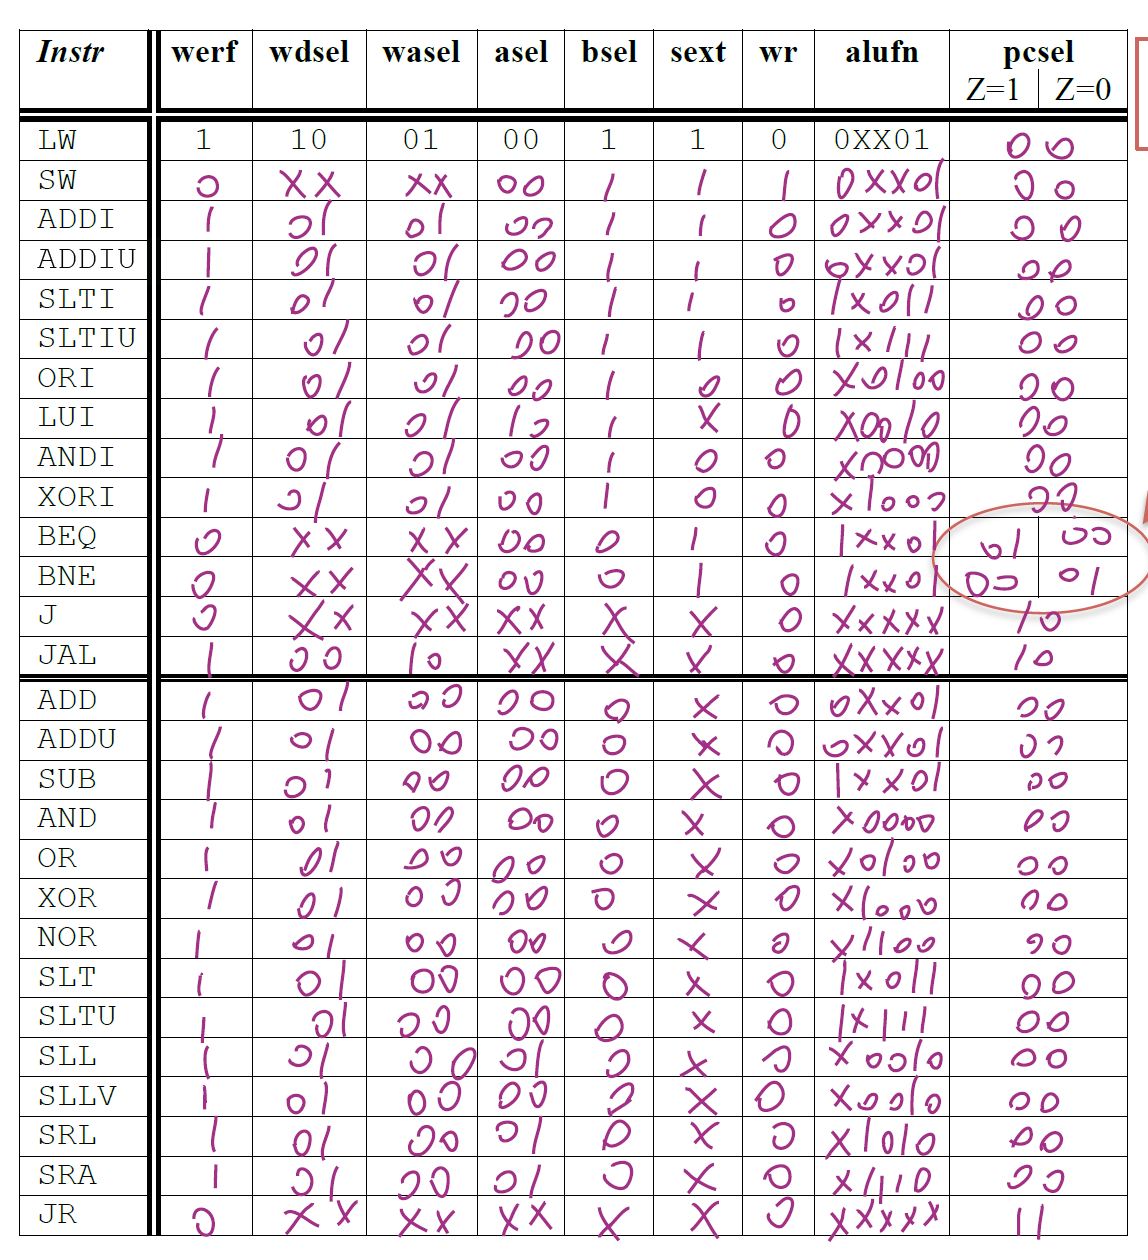 Instr werf wdsel wasel asel bsel sext wr alufn pcsel
Z=1 Z=0
LW 1 10 01 00 1 1 0 0XX01 00
SW 0 XX XX 00 1 1 1 0XX01 00
ADDI 1 01 01 00 1 1 0 0XX01 00
ADDIU 1 01 01 00 1 1 0 0XX01 00
SLTI 1 01 01 00 1 1 0 1X011 00
SLTIU 1 01 01 00 1 1 0 1X111 00
ORI 1 01 01 00 1 0 0 X0100 00
LUI 1 01 01 10 1 X 0 X0010 00
ANDI 1 01 01 00 1 0 0 X0000 00
XORI 1 01 01 00 1 0 0 X1000 00
BEQ 0 XX XX 00 0 1 0 1XX01 01 00
BNE 0 XX XX 00 0 1 0 1XX01 00 01
J 0 XX XX XX X X 0 XXXXX 10
JAL 1 00 10 XX X X 0 XXXXX 10
ADD 1 01 00 00 0 X 0 0XX01 00
ADDU 1 01 00 00 0 X 0 0XX01 00
SUB 1 01 00 00 0 X 0 1XX01 00
AND 1 01 00 00 0 X 0 X0000 00
OR 1 01 00 00 0 X 0 X0100 00
XOR 1 01 00 00 0 X 0 X1000 00
NOR 1 01 00 00 0 X 0 X1100 00
SLT 1 01 00 00 0 X 0 1X011 00
SLTU 1 01 00 00 0 X 0 1X111 00
SLL 1 01 00 01 0 X 0 X0010 00
SLLV 1 01 00 00 0 X 0 X0010 00
SRL 1 01 00 01 0 X 0 X1010 00
SRA 1 01 00 01 0 X 0 X1110 00
JR 0 XX XX XX X X 0 XXXXX 11